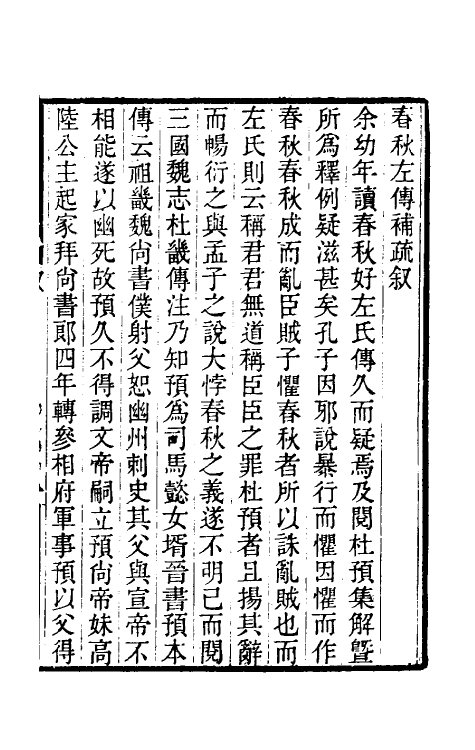 春秋左傳補疏叙
余幼年讀春秋好左氏傳久而疑焉及閱杜預集解暨
所爲釋例疑滋甚矣孔子因邪說暴行而懼因懼而作
春秋春秋成而亂臣賊子懼春秋者所以誅亂賊也而
左氏則云稱君君無道稱臣臣之罪杜預者且揚其辭
而暢衍之與孟子之說大悖春秋之義遂不明已而閱
三國魏志杜畿傳注乃知預爲司馬懿女壻晉書預本
傳云祖畿魏尚書僕射父恕幽州刺史其父與宣帝不
相能遂以幽死故預久不得調文帝嗣立預尚帝妹高
陸公主起家拜尚書郎四年轉參相府軍事預以父得